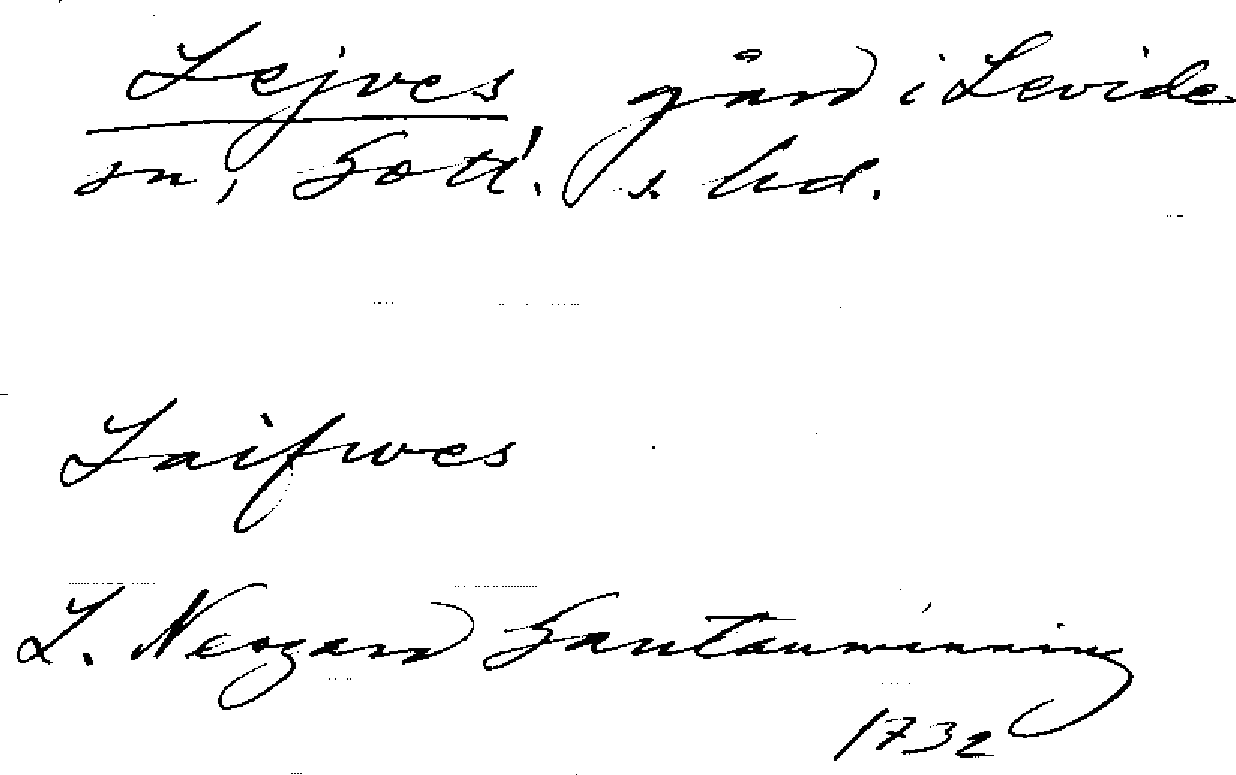 Lejves gård i Levide
sn, Gotl. s. hd.
Laifwes
L. Neogard Gautauminning
1732